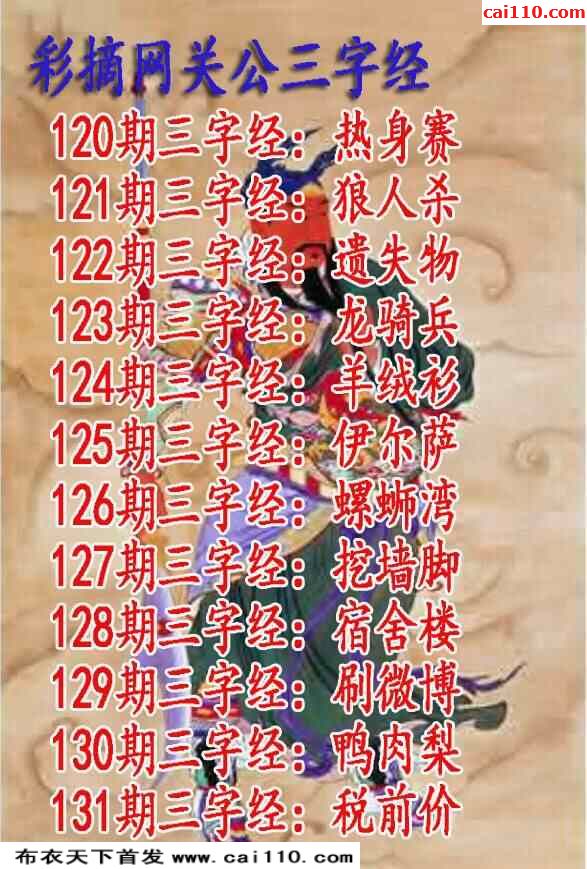 cai110.com
彩摘网关公三字经
120期三字经：热身赛
121期三字经：狼人杀
122期三字经：遗失物
123期三字经：龙骑兵
124期三字经：羊绒衫
125期三字经：伊尔萨
126期三字经：螺蛳湾
127期三字经：挖墙脚
128期三字经：宿舍楼
129期三字经：刷微博
130期三字经：鸭肉梨
131期三字经：税前价
布衣天下首发 www.cai110.com